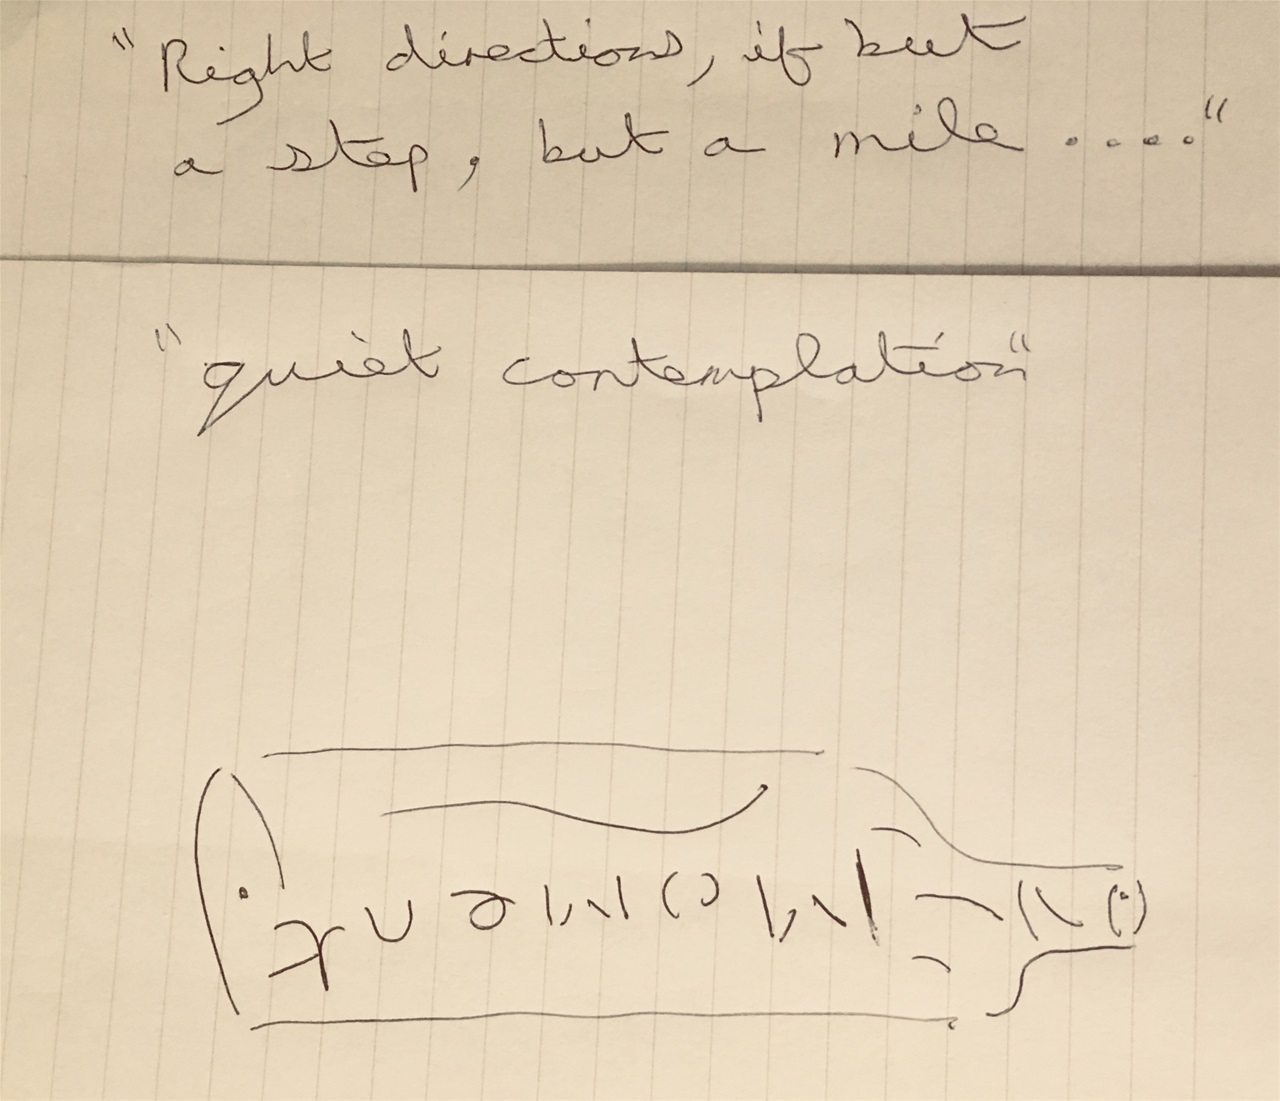 "Right directions, if but
a step, but a mile ...."
"quiet contemplation"